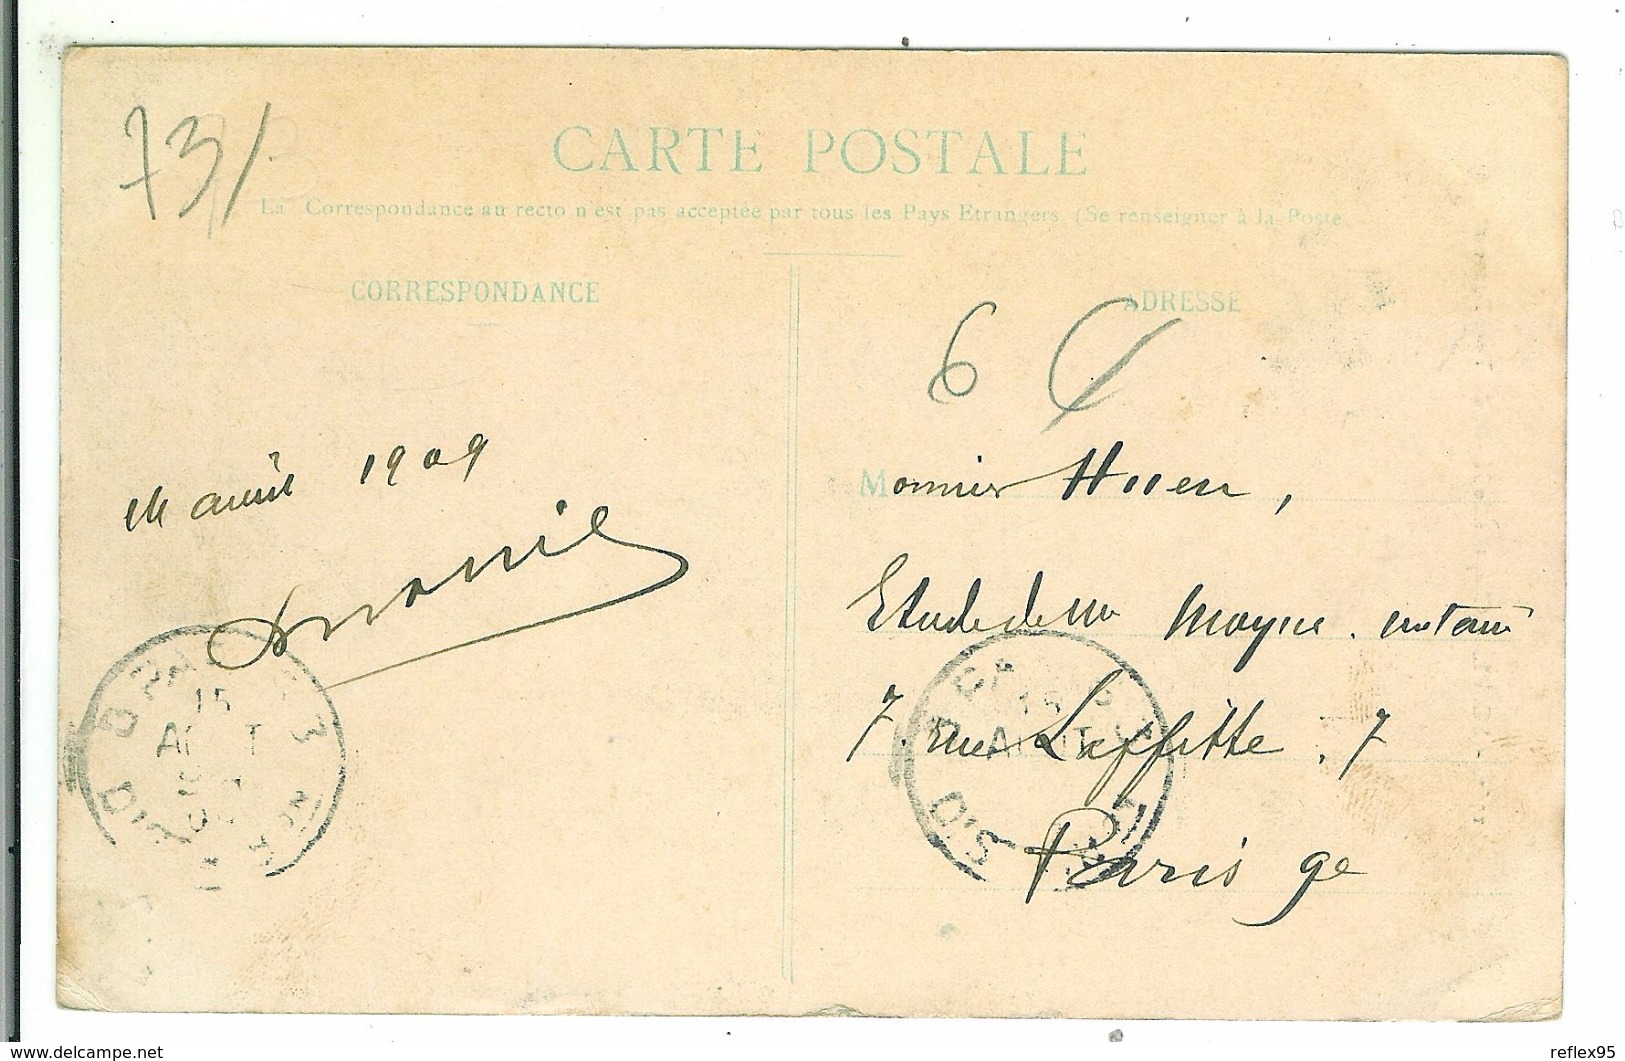 73/
CARTE POSTALE
La Correspondance au recto n'est pas acceptée par tous les Pays Etrangers. (Se renseigner à la Poste
CORRESPONDANCE
ADRESSE
6
1909
Monsieur
Etude de Moyne. notaire
7. rue Laffitte, 7
Paris 9e
15
AOUT
15
AOUT
reflex95
delcampe.net